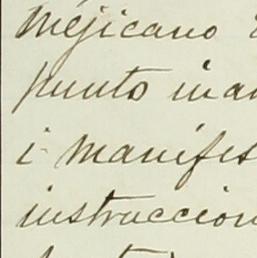 mejicano
punto inau
i manifes
instruccion